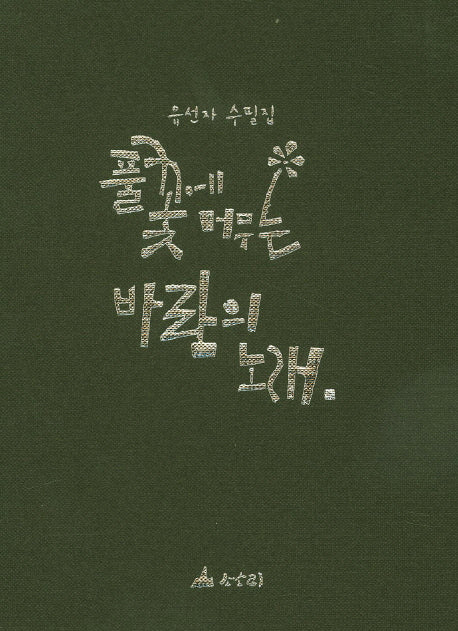 유선자 수필집
풀꽃에 머무는
바람의
노래.
소소리